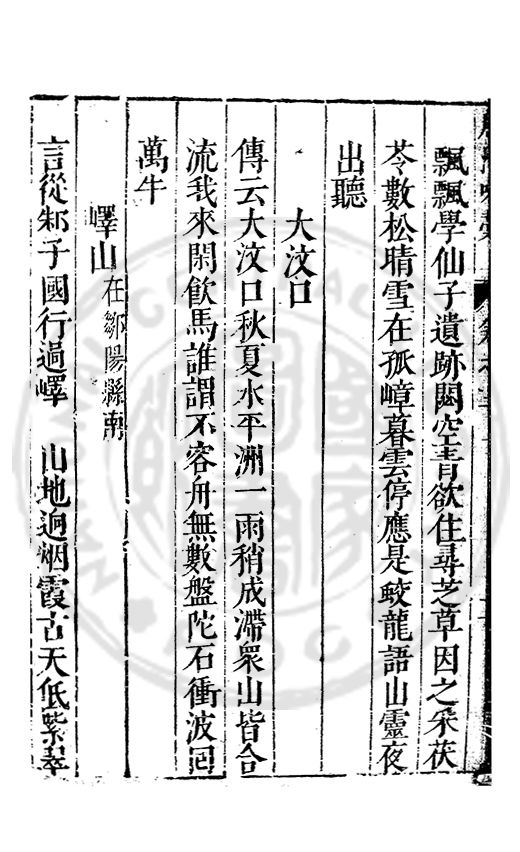 飄飄學仙子遺跡閟空青欲住尋芝草因之采茯
苓數松晴雪在孤嶂暮雲停應是蛟龍語山靈夜
出聽
大汶口
傳云大汶口秋夏水平洲一雨稍成滯衆山皆合
流我來閑飲馬誰謂不容舟無數盤陀石衝波回
萬牛
嶧山在鄒陽縣南
言從邾子國行過嶧 山地迥烟霞古天低紫翠